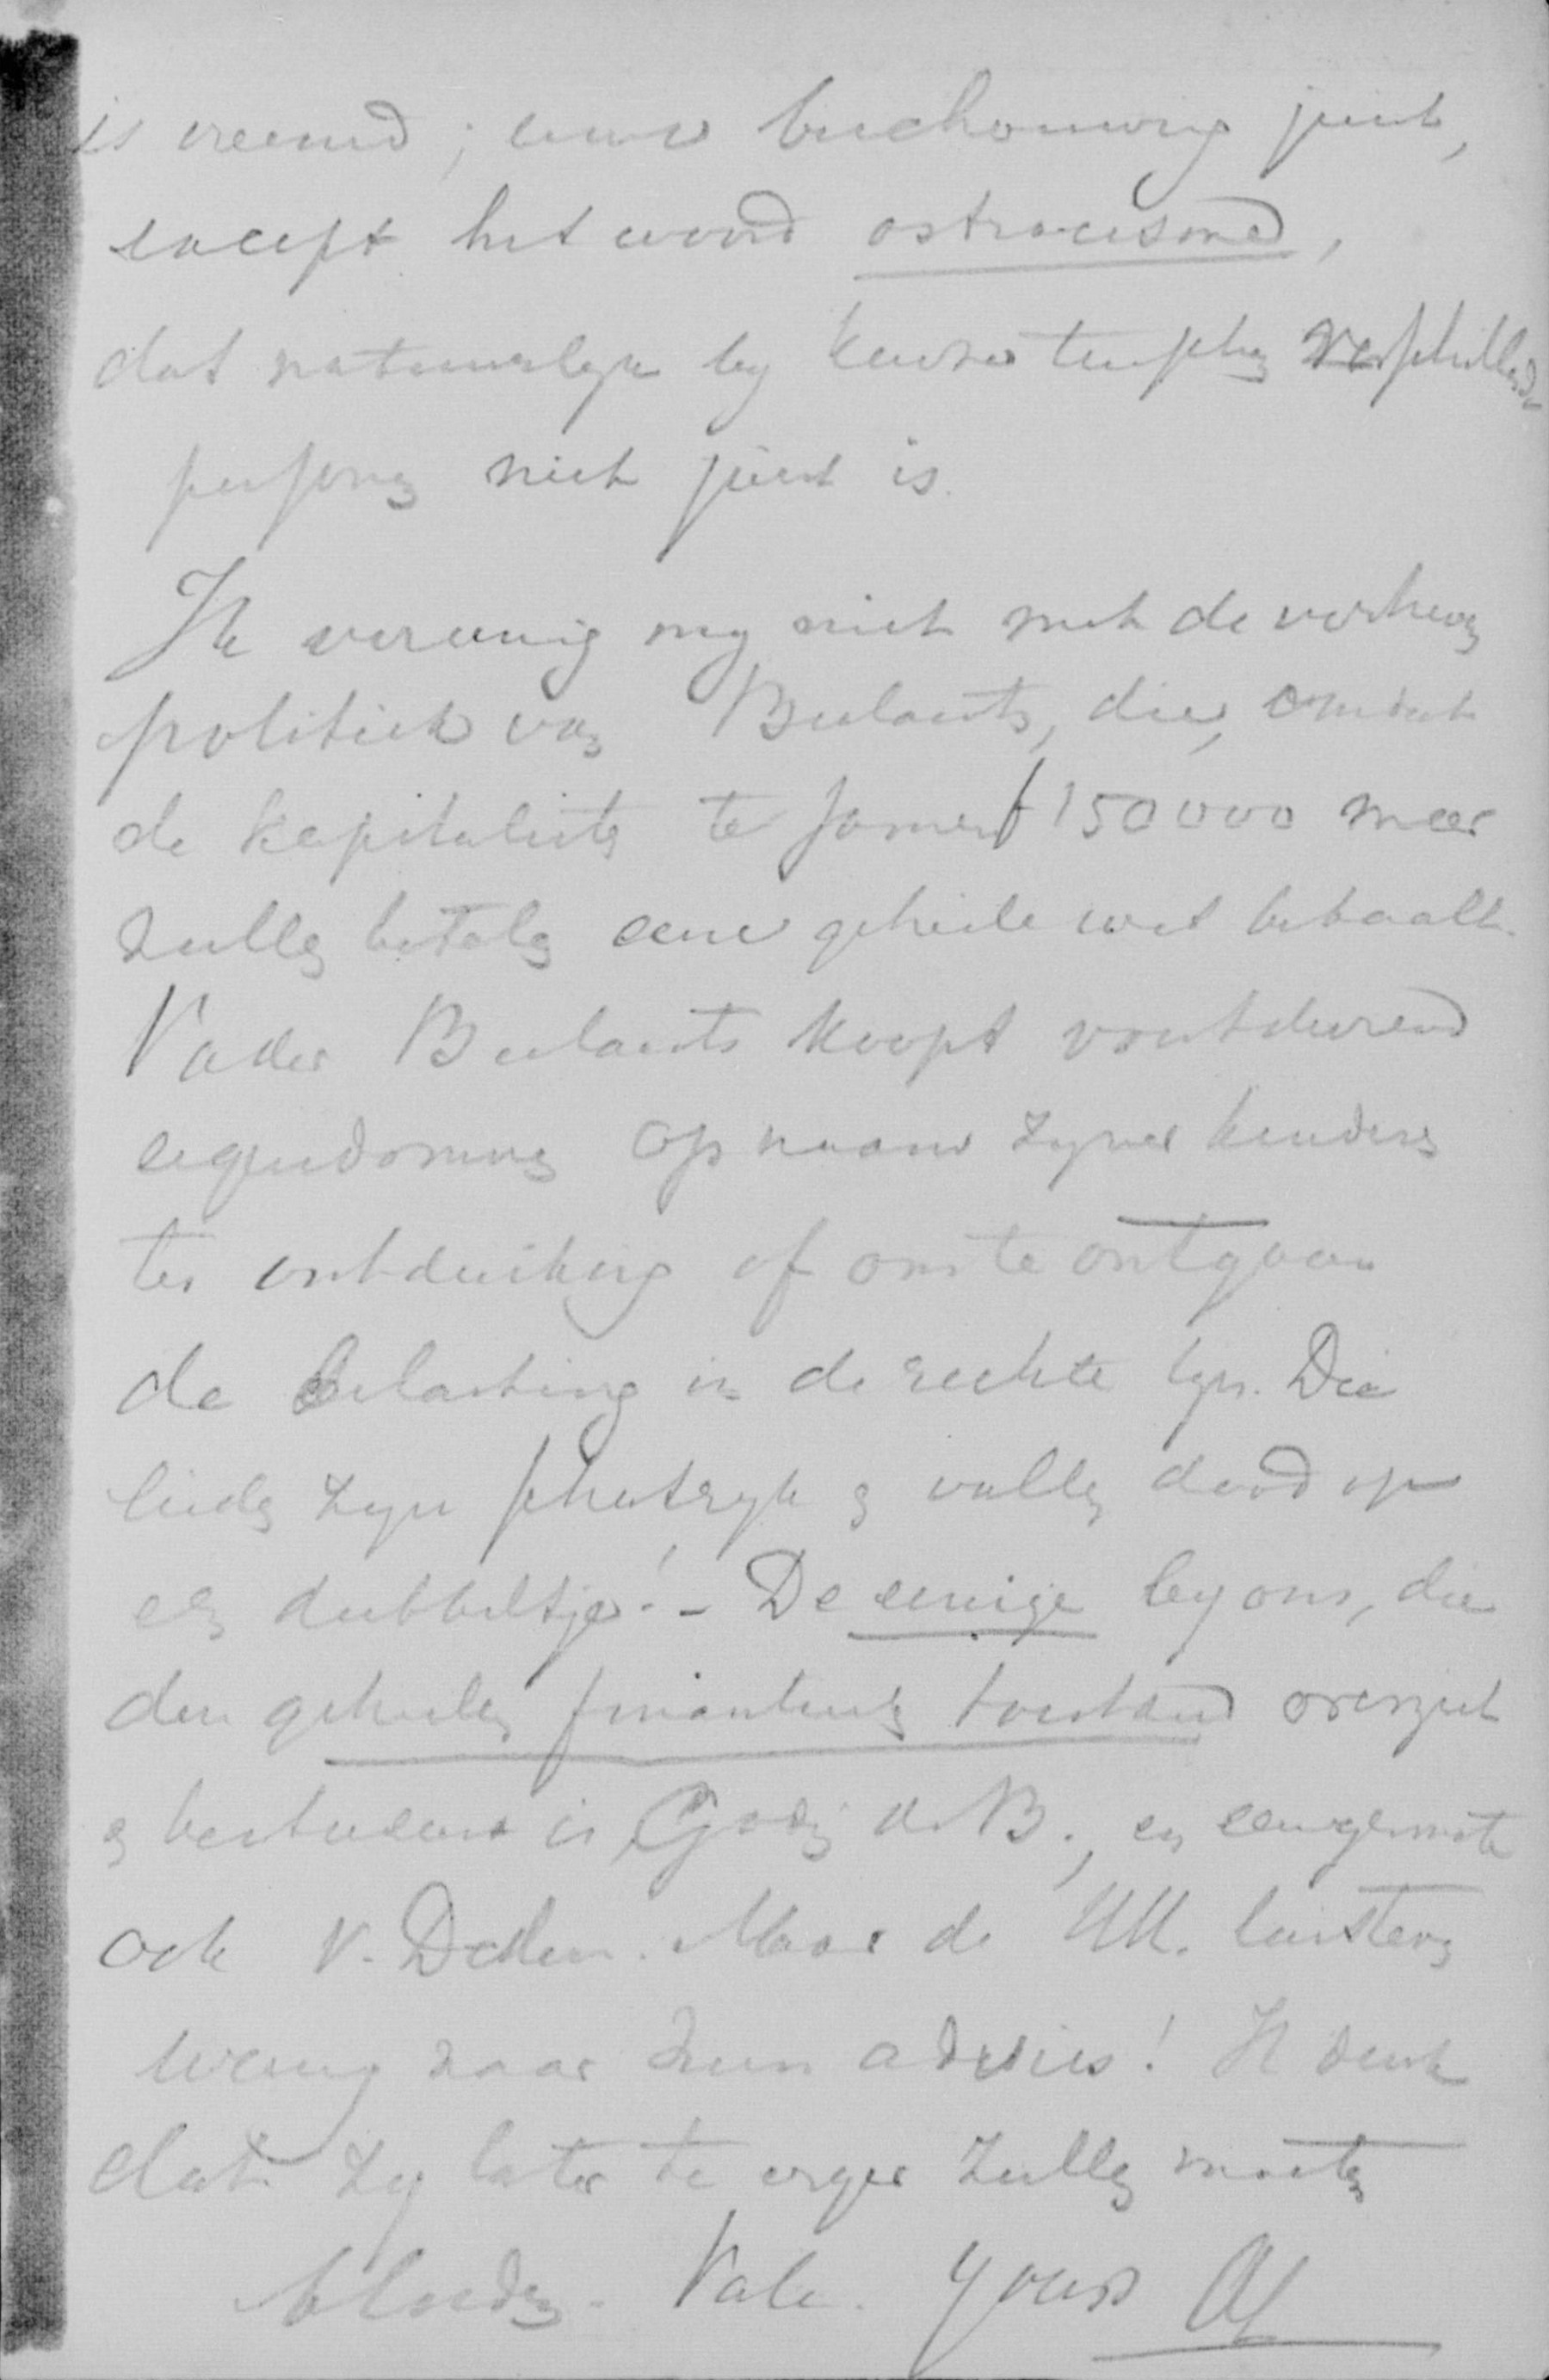 is vreemd; uwe beschouwing juist,
except het woord ostracisme,
dat natuurlyk by keuze tusschen verschillende
personen niet juist is.
Ik vereenig my niet met de
politiek van Beelaerts, die, omdat
de kapitalisten te samen f 150000 meer
zullen betalen eene geheele wet behaalt.
Vader Beelaerts koopt voortdurend
eigendommen op naam zyner kinderen
ter ontduiking of om te ontgaan
de belasting in de rechte lyn. Die
lieden zyn schatryk en vallen dood op
een dubbeltje! – De eenige by ons, die
den geheelen financieelen toestand overziet
en bestudeert is Godin d. B., en eenigermate
ook v. Dedem. Maar de HH. luisteren
weinig naar hun advies! Ik denk
dat zy later te erger zullen moeten
bloeden. Vale. Yours